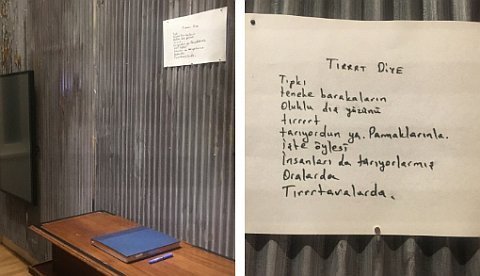 TIRRRT DİYE
Tıpkı
teneke barakaların
Oluklu dış yüzünü
tırrrrt
tarıyordun ya. Parmaklarınla.
İşte öylesi
İnsanları da tarıyorlarmış
Oralarda
Tırrrtavalarda.